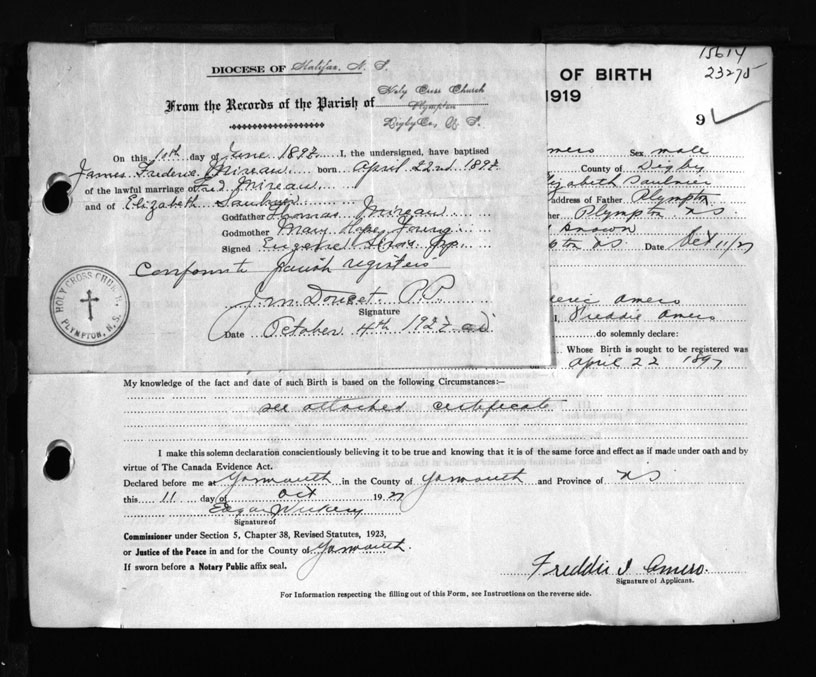 DIOCESE OF Halifax, N. S.
From the Records of the Parish of Holy Cross Church
Plympton
Digby Co, N. S.
On this 10th day of June 1897. I, the undersigned, have baptised
James Frederic Mireau born April 22nd 1897
of the lawful marriage of Fred Mireau
and of Elizabeth
Godfather Thomas Mireau
Godmother Mary Young
Signed
Conform to parish registers
J. M. Doucet P.P.
Signature
Date October 4th 1927
HOLY CROSS CHURCH
PLYMPTON, N.S.
15614
23275
OF BIRTH
1919
9
mero Sex male
County of Digby
Elizabeth Saulnier
address of Father Plympton
her Plympton NS
pton NS Date Oct 11/27
deric Amero
I, Freddie Amero
do solemnly declare:
Whose Birth is sought to be registered was
on April 22 1897
My knowledge of the fact and date of such Birth is based on the following Circumstances:—
see attached certificate
I make this solemn declaration conscientiously believing it to be true and knowing that it is of the same force and effect as if made under oath and by
virtue of The Canada Evidence Act.
Declared before me at Yarmouth in the County of Yarmouth and Province of NS
this 11 day of Oct 1927
Edgar
Signature of
Commissioner under Section 5, Chapter 38, Revised Statutes, 1923,
or Justice of the Peace in and for the County of Yarmouth.
If sworn before a Notary Public affix seal.
Freddie J Amero.
Signature of Applicants.
For Information respecting the filling out of this Form, see Instructions on the reverse side.